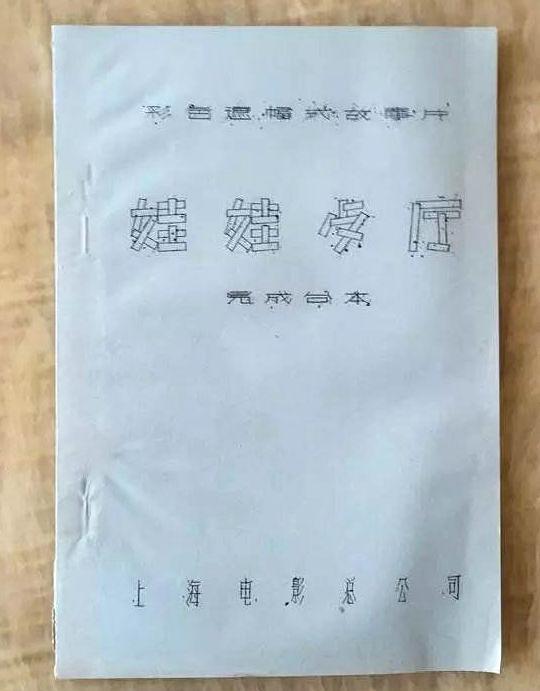 彩色遮幅式故事片
娃娃歺厅
完成台本
上海电影总公司